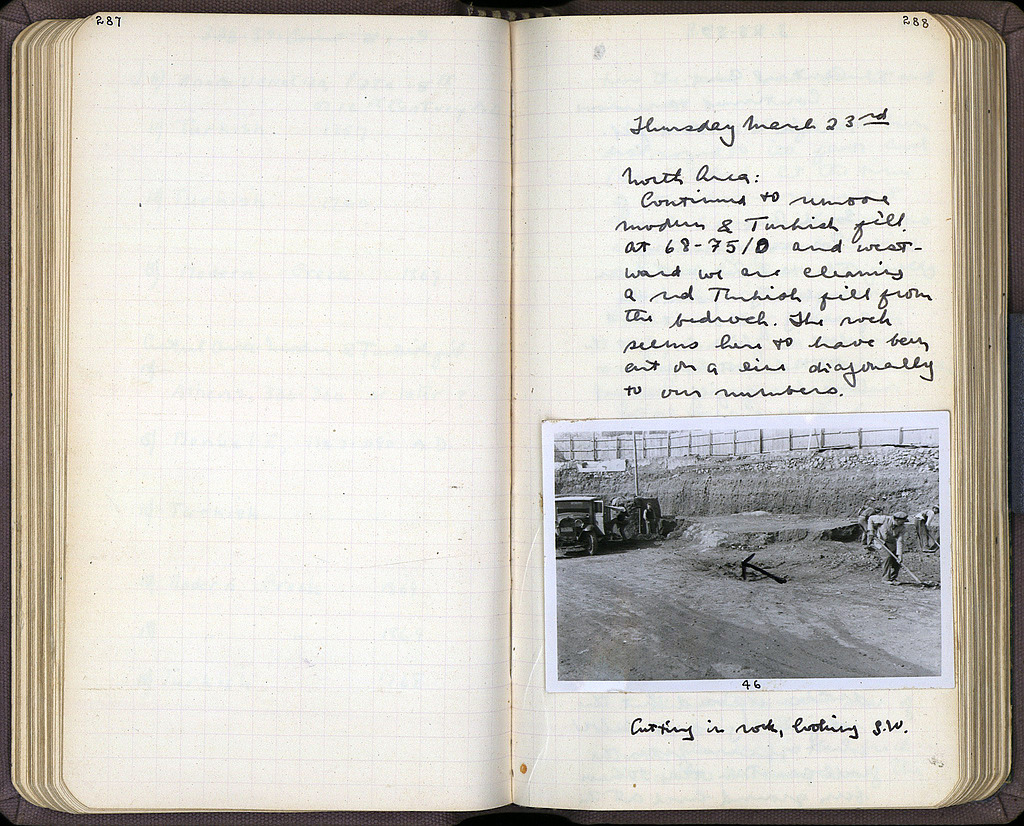 287
288
Thursday March 23rd
North Area:
Continued to remove
modern & Turkish fill.
At 68-75/Θ and west-
ward we are cleaning
a red Turkish fill from
the bedrock. The rock
seems here to have been
cut on a line diagonally
to our numbers.
46
Cutting in rock, looking S.W.